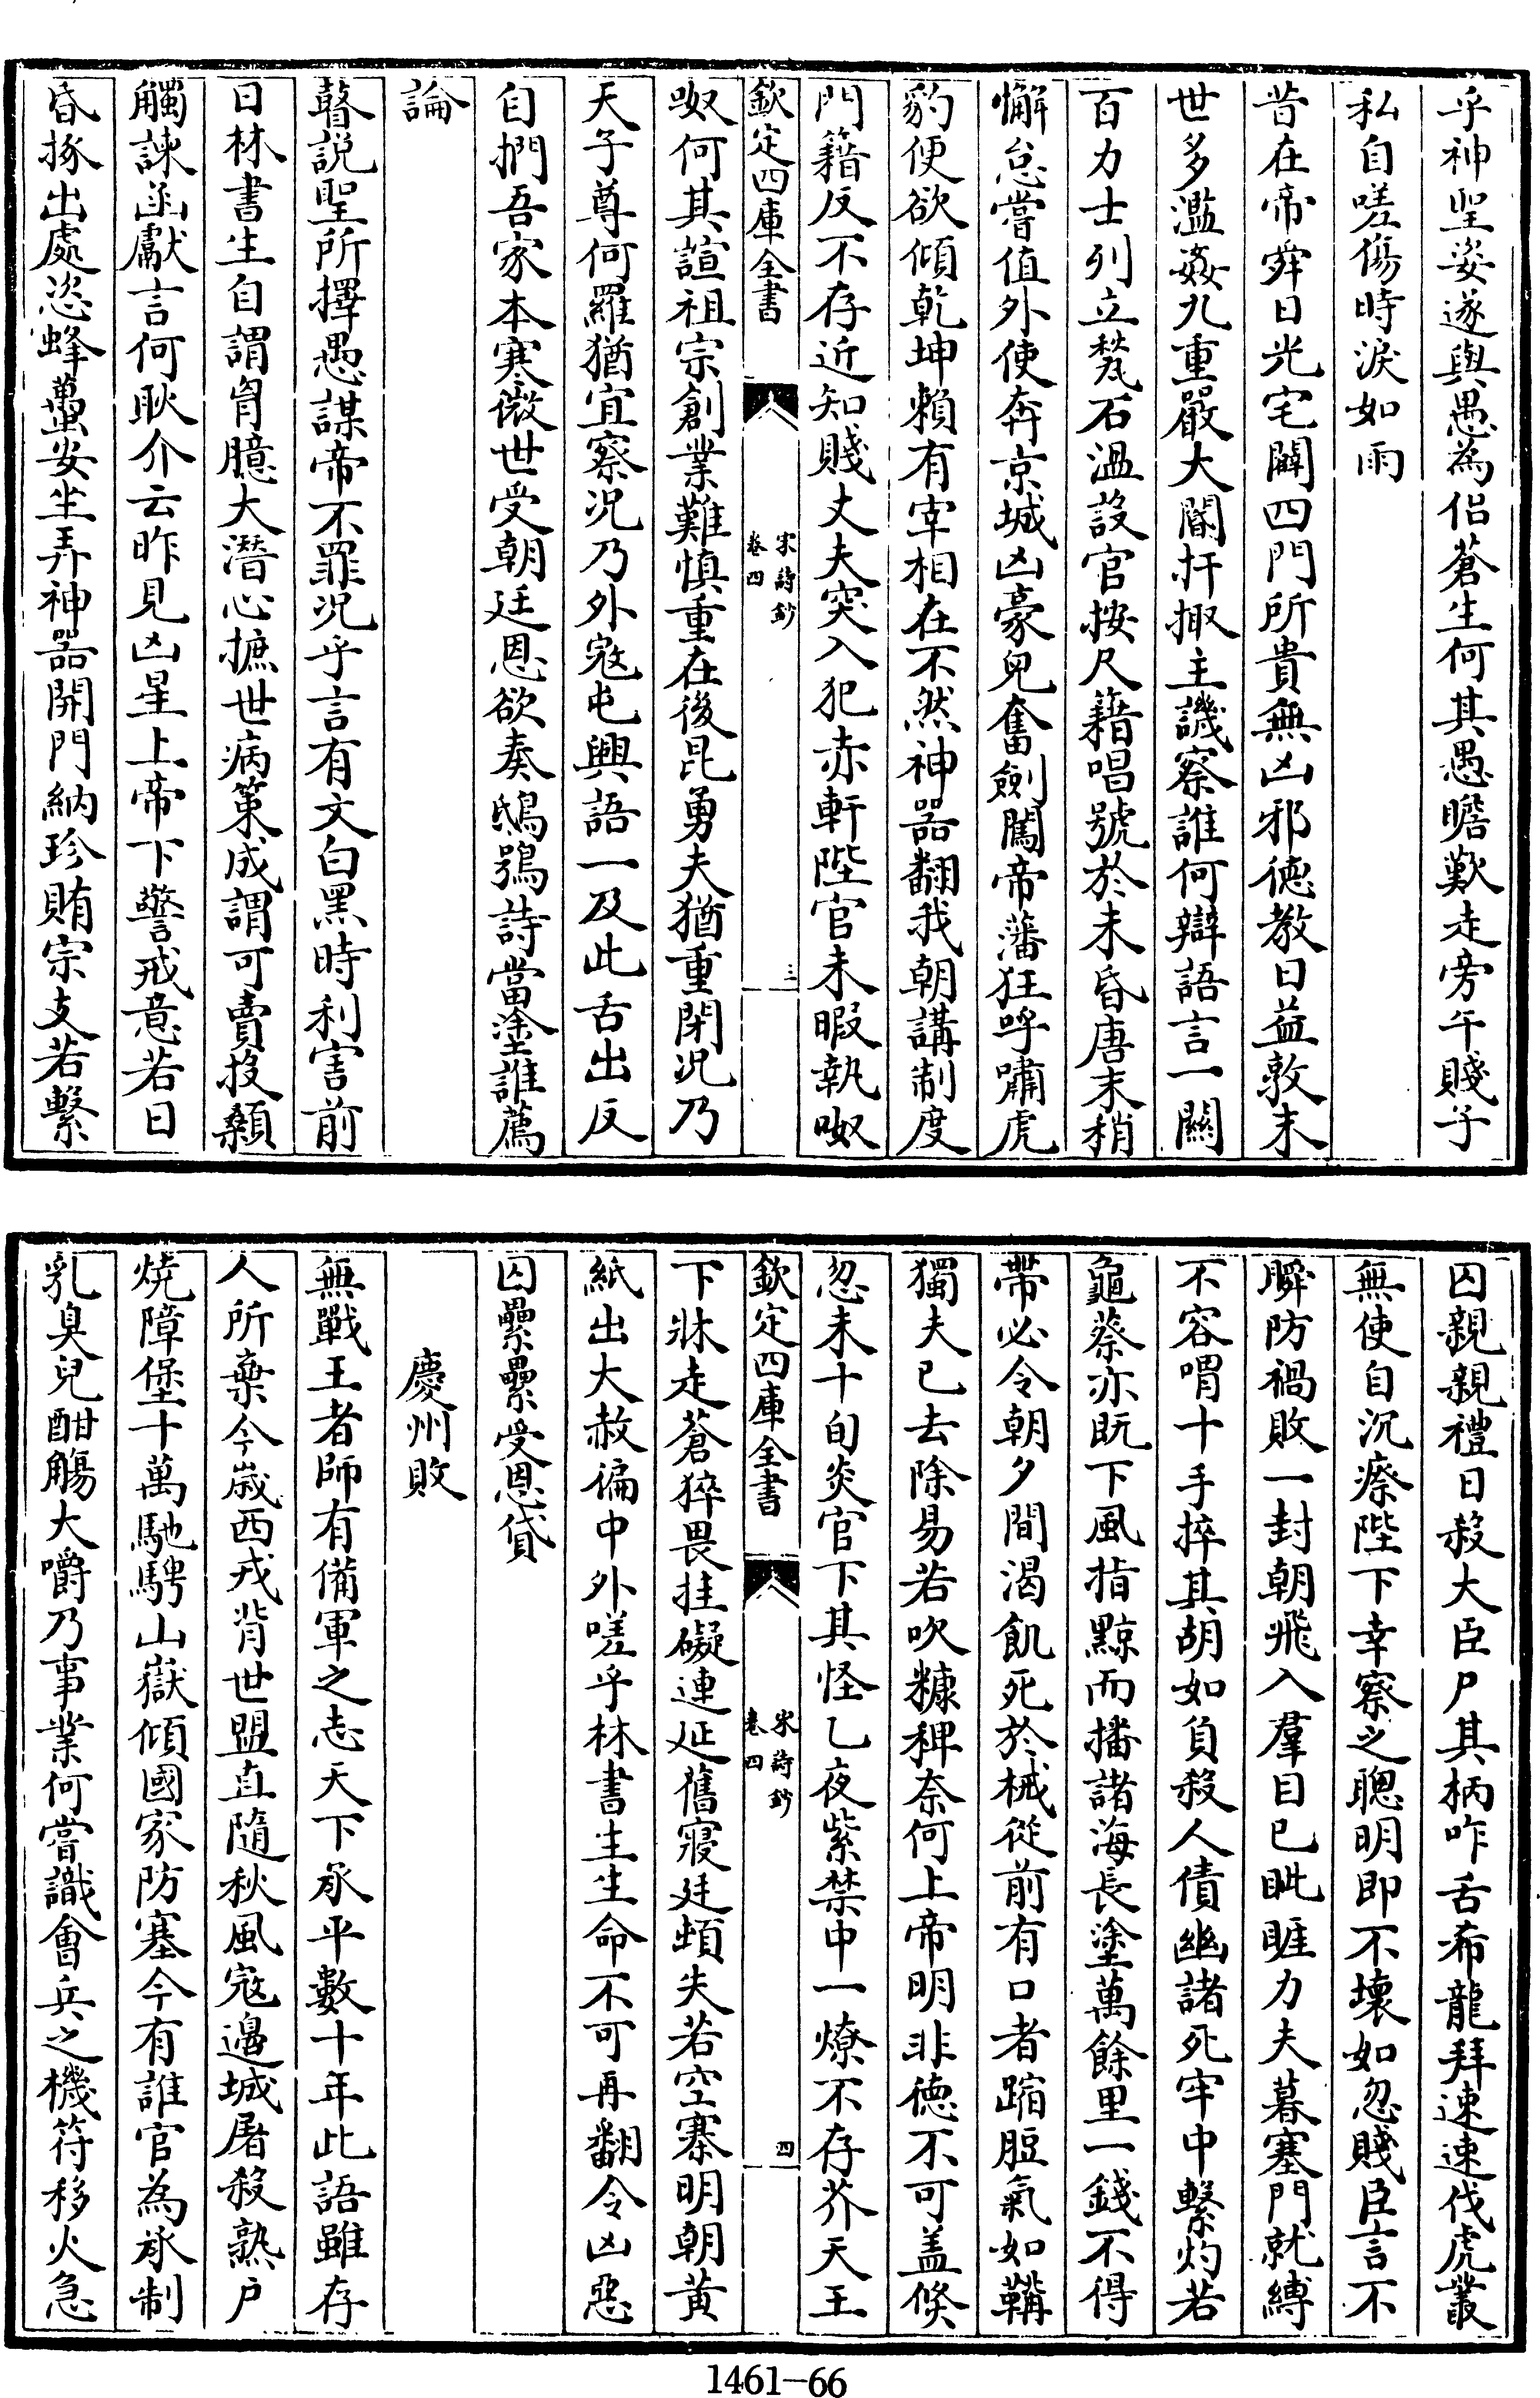 乎神聖姿遂與愚為侣蒼生何其愚瞻歎走旁午賤子
私自嗟傷時淚如雨
昔在帝舜日光宅闢四門所貴無凶邪德教日益敦末
世多濫姦九重嚴大閽扞掫主譏察誰何辯語言一闗
百力士列立㽅石温設官按尺籍唱號於未昏唐末稍
懈怠嘗值外使奔京城凶豪兒奮劍闖帝藩狂呼嘯虎
豹便欲傾乾坤賴有宰相在不然神器翻我朝講制度
門籍反不存近知賤丈夫突入犯赤軒陛官未暇執呶
欽定四庫全書
宋詩鈔
卷四
三
呶何其諠祖宗創業難慎重在後昆勇夫猶重閉况乃
天子尊何羅猶宜察况乃外寇屯興語一及此舌出反
自捫吾家本寒微世受朝廷恩欲奏鴟鴞詩當塗誰薦
論
瞽說聖所擇愚謀帝不罪况乎言有文白黑時利害前
日林書生自謂胷臆大潛心摭世病策成謂可賣投顙
觸諫函獻言何耿介云昨見凶星上帝下警戒意若日
昏椓出處恣蜂蠆安坐弄神器開門納珍賄宗支若繫
囚親親禮日殺大臣尸其柄咋舌希龍拜速速伐虎叢
無使自沉瘵陛下幸察之聰明即不壞如忽賤臣言不
瞬防禍敗一封朝飛入羣目已眦睚力夫暮塞門就縛
不容喟十手捽其胡如負殺人債幽諸死牢中繫灼若
龜蔡亦既下風指黥而播諸海長塗萬餘里一錢不得
帶必令朝夕間渴飢死於械從前有口者蹜脰氣如鞴
獨夫已去除易若吹糠稗奈何上帝明非德不可盖倐
忽未十旬炎官下其怪乙夜紫禁中一燎不存芥天王
欽定四庫全書
宋詩鈔
卷四
四
下牀走蒼猝畏挂礙連延舊寢廷頃失若空寨明朝黃
紙出大赦徧中外嗟乎林書生生命不可再翻令凶惡
囚纍纍受恩貸
慶州敗
無戰王者師有備軍之志天下承平數十年此語雖存
人所棄今歲西戎背世盟直隨秋風寇邉城屠殺熟户
燒障堡十萬馳騁山嶽傾國家防塞今有誰官為承制
乳臭兒酣觴大嚼乃事業何嘗識㑹兵之機符移火急
1461-66